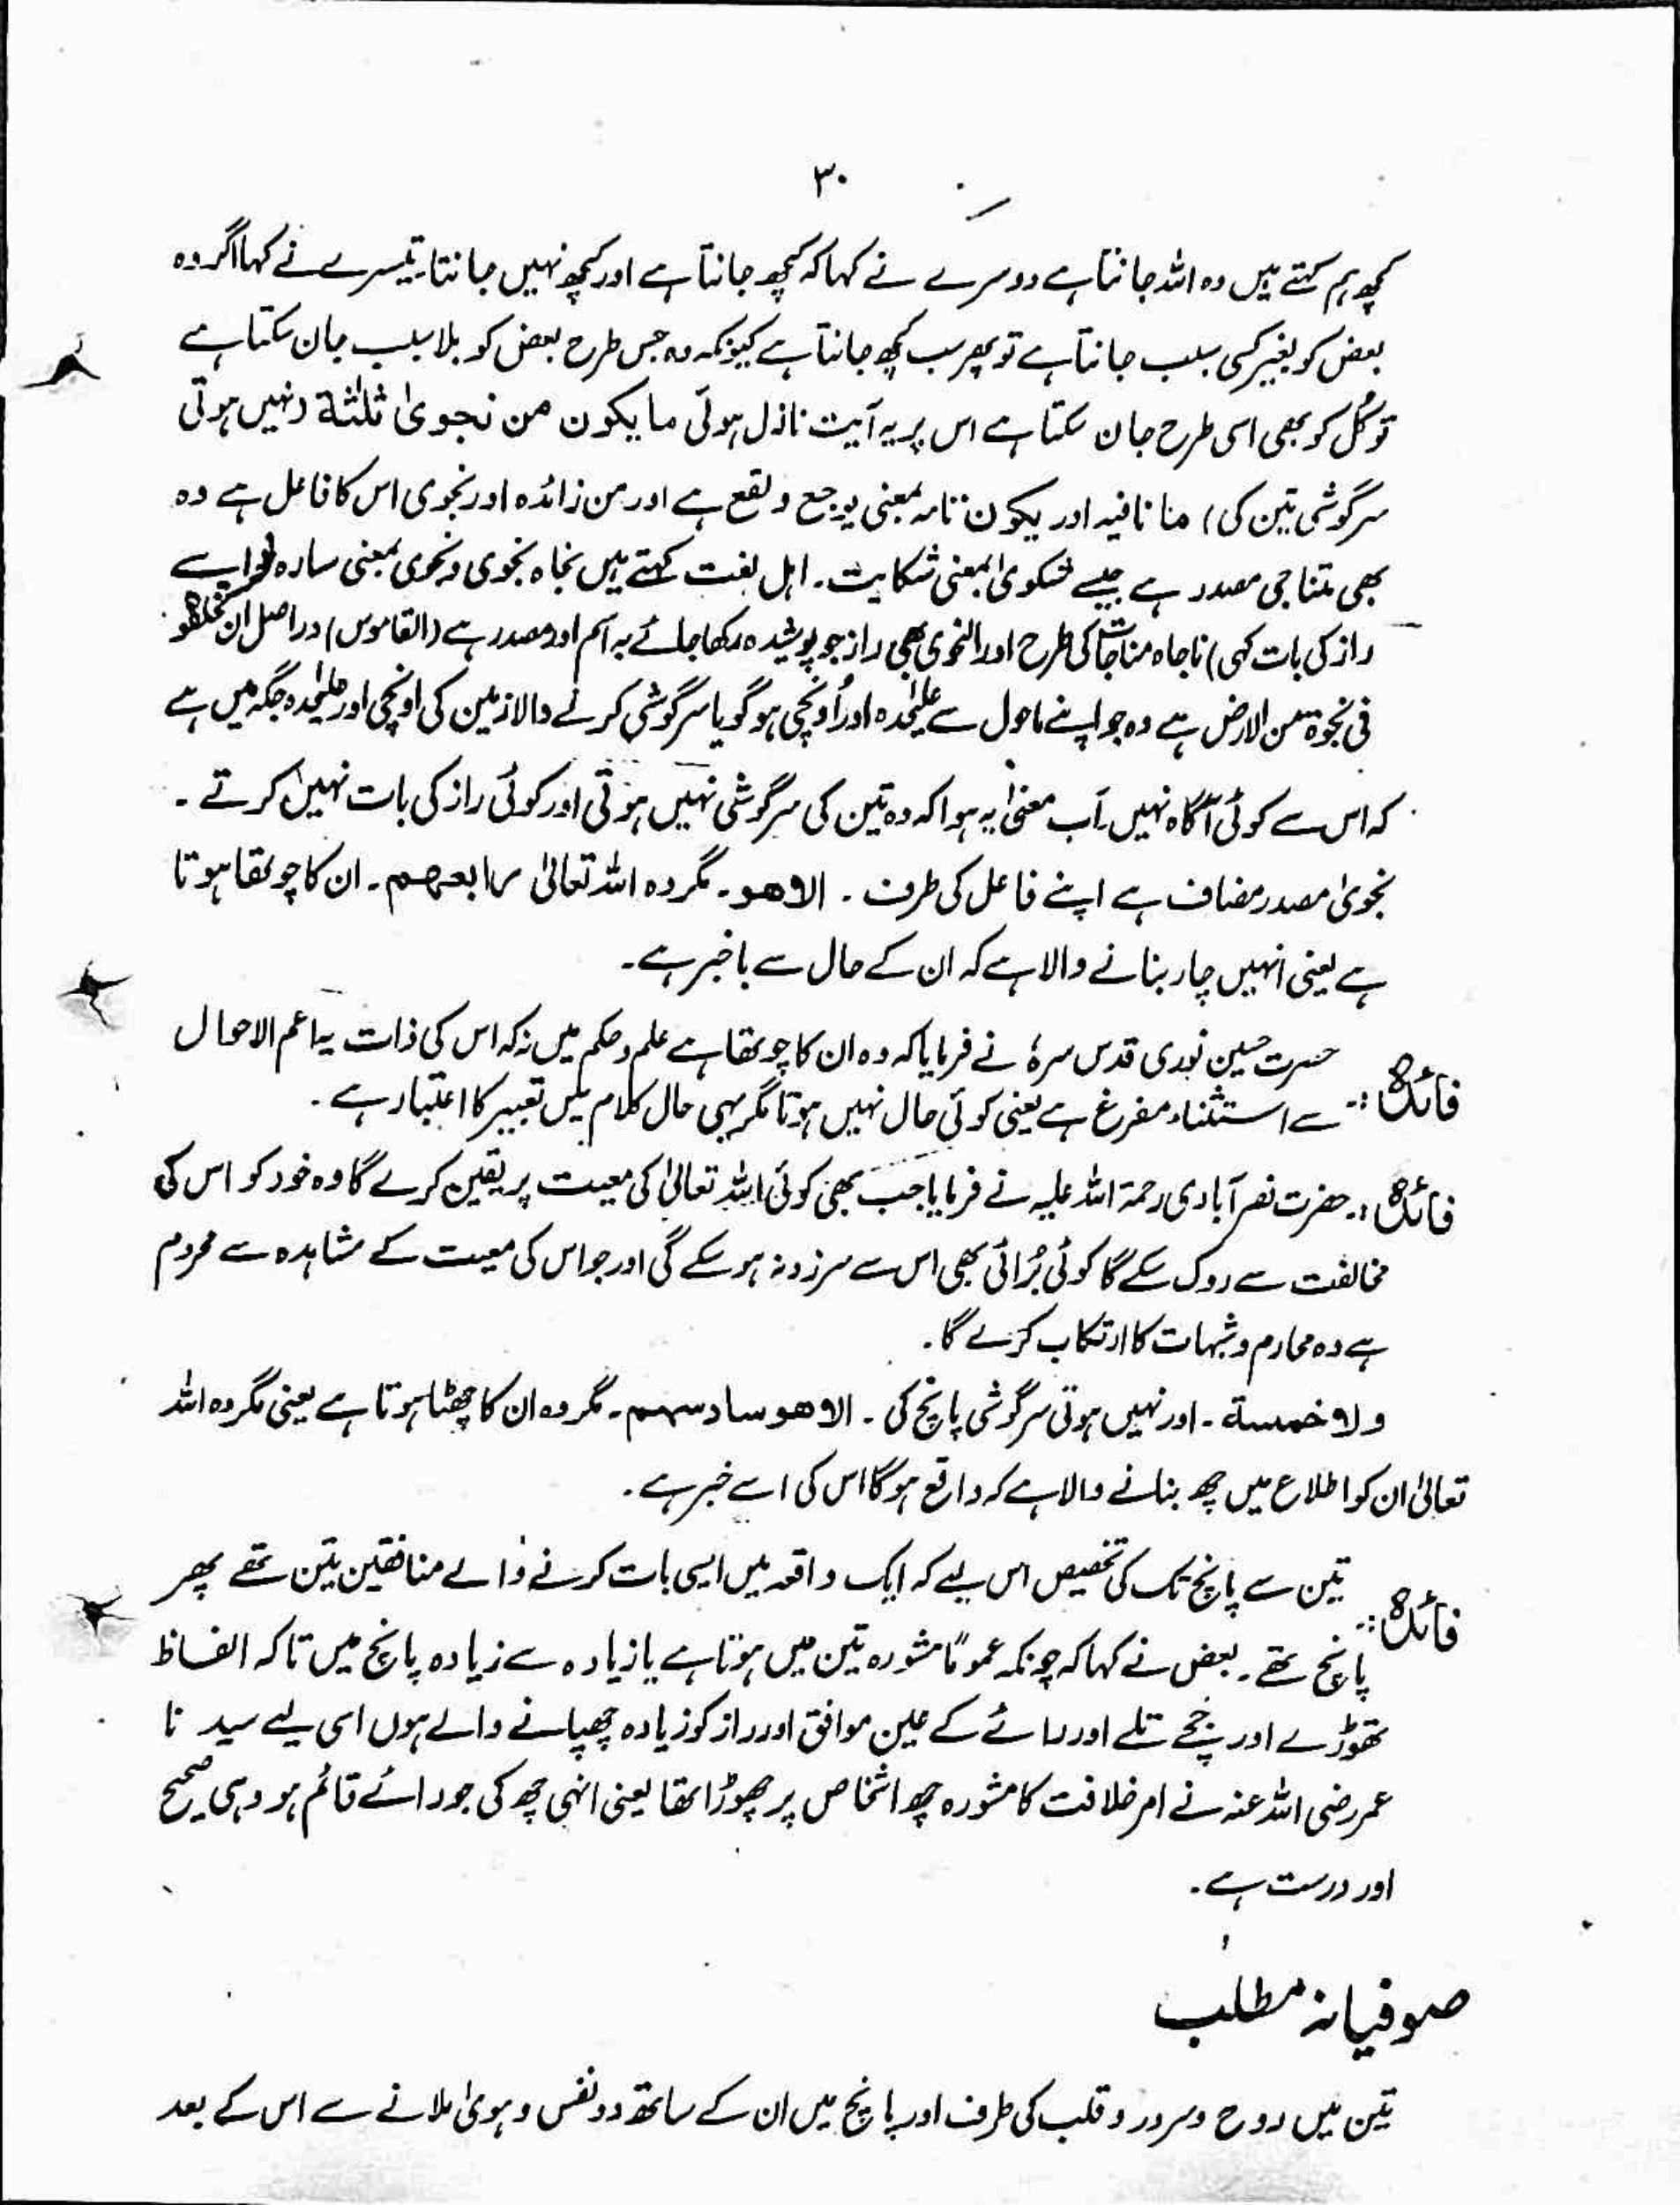 ۳۰
کچھ ہم کہتے ہیں وہ اللہ جانتا ہے دوسرے نے کہا کہ کچھ جانتا ہے اور کچھ نہیں جانتا تیسرے نے کہا اگر وہ
بعض کو بغیر کسی سبب جانتا ہے تو پھر سب کچھ جانتا ہے کیونکہ وہ جس طرح بعض کو بلا سبب جان سکتا ہے
تو کُل کو بھی اسی طرح جان سکتا ہے اس پر یہ آیت نازل ہوئی ما یکون من نجویٰ ثلٰثة (نہیں ہوتی
سرگوشی تین کی) ما نافیہ اور یکون تامہ بمعنی یوجع و لقع ہے اور من زائدہ اور نجوی اس کا فاعل ہے وہ
بھی تناجی مصدر ہے جیسے شکویٰ بمعنی شکایت۔ اہل لغت کہتے ہیں نجاہ نجوی ونحوی بمعنی سارہ
راز کی بات کہی) ناجاہ مناجاۃ کی طرح اور النحوی بھی راز جو پوشیدہ رکھا جائے یہ اسم اور مصدر ہے (القاموس) دراصل ان
فی نجوۃ من الارض ہے وہ جو اپنے ماحول سے علیٰحدہ اور اُونچی ہو گویا سرگوشی کرنے والا زمین کی اونچی اور علیٰحدہ جگہ میں ہے
کہ اس سے کوئی آگاہ نہیں۔ اَب معنیٰ یہ ہوا کہ وہ تین کی سرگوشی نہیں ہوتی اور کوئی راز کی بات نہیں کرتے ۔
نجویٰ مصدر مضاف ہے اپنے فاعل کی طرف ۔ الا ھو۔ مگر وہ اللہ تعالیٰ رابعھم۔ ان کا چوتھا ہوتا
ہے یعنی انہیں چار بنانے والا ہے کہ ان کے حال سے باخبر ہے۔
حسرت حسین نوری قدس سرہٗ نے فرمایا کہ وہ ان کا چوتھا ہے علم و حکم میں نہ کہ اس کی ذات یہ اعم الاحوال
فائدہ:۔ سے استثناء مفرغ ہے یعنی کوئی حال نہیں ہوتا مگر یہی حال کلام میں تعبیر کا اعتبار ہے ۔
فائدہ:۔ حضرت نصر آبادی رحمۃ اللہ علیہ نے فرمایا جب بھی کوئی اللہ تعالیٰ کی معیت پر یقین کرے گا وہ خود کو اس کی
مخالفت سے روک سکے گا کوئی بُرائی بھی اس سے سرزد نہ ہو سکے گی اور جو اس کی معیت کے مشاہدہ سے محروم
ہے وہ محارم و شبہات کا ارتکاب کرے گا۔
ولا خمسة ۔ اور نہیں ہوتی سرگوشی پانچ کی ۔ الا ھو سادسہم ۔ مگر وہ ان کا چھٹا ہوتا ہے یعنی مگر وہ اللہ
تعالیٰ ان کو اطلاع میں چھ بنانے والا ہے کہ واقع ہوگا اس کی اسے خبر ہے ۔
تین سے پانچ تک کی تخصیص اس لیے کہ ایک واقعہ میں ایسی بات کرنے والے منافقین تین تھے پھر
فائدہ:۔ پانچ تھے ۔ بعض نے کہا کہ چونکہ عموماً مشورہ تین میں ہوتا ہے یا زیادہ سے زیادہ پانچ میں تاکہ الفاظ
تھوڑے اور جچے تلے اور رائے کے عین موافق اور راز کو زیادہ چھپانے والے ہوں اسی لیے سیدنا
عمر رضی اللہ عنہ نے امر خلافت کا مشورہ چھ اشخاص پر چھوڑا تھا یعنی انہی چھ کی جو رائے قائم ہو وہی صحیح
اور درست ہے ۔
صوفیانہ مطلب
تین میں روح و سرور و قلب کی طرف اور پانچ میں ان کے ساتھ دو نفس و ہویٰ ملانے سے اس کے بعد